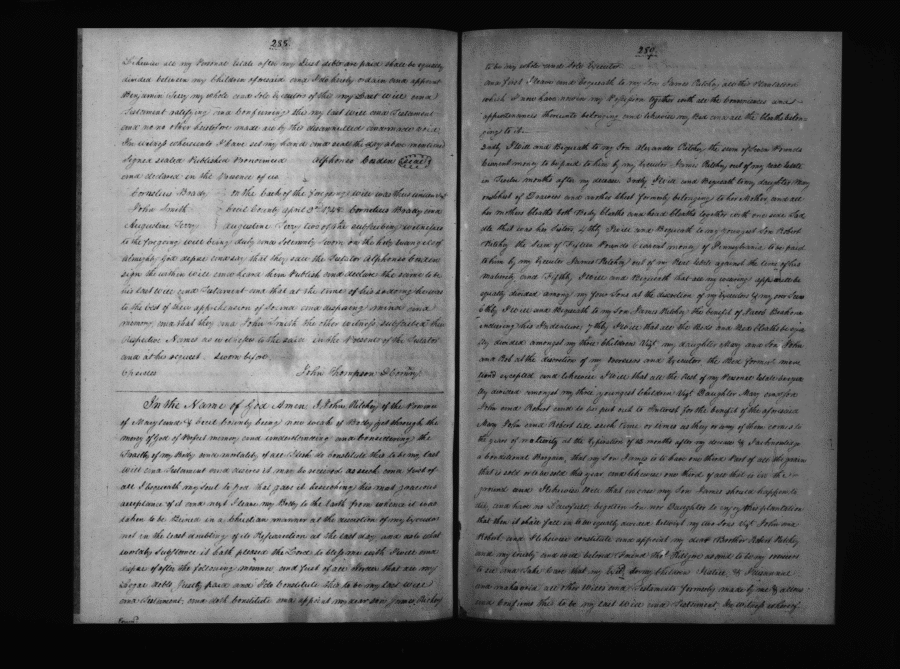 288
Likewise all my Personal Estate after my Just debts are paid shall be equally
divided between my Children aforesaid and I do hereby ordain and appoint
Benjamin Terry my whole and Sole Executor of this my Last Will and
Testament ratifying and Confirming this my last Will and Testament
and no other heretofore made all by this disannulled and made void
In witness whereunto I have set my hand and seal the day above mentioned
Signed sealed Published Pronounced Alphonso Cosden
and declared in the Presence of us
Cornelius Brady
John Smith
Augustine Terry
On the back of the foregoing Will was thus
Cecil County april 1748 Cornelius Brady and
Augustine Terry two of the subscribing witnesses
to the foregoing will being duly and Solemnly sworn on the holy Evangels of
Almighty God depose and say that they saw the Testator Alphonso Cosden
sign the within Will and heard him Publish and declare the same to be
his last Will and Testament and that at the time of his so doing he was
to the best of their apprehension of Sound and disposing mind and
memory and that they and John Smith the other witness subscribed their
respective Names as witnesses to the said in the Presence of the Testator
and at his request. Sworn before
John Thompson D Comry
In the Name of God Amen I John Ritchey of the Province
of Maryland & Cecil County being now weak of Body yet through the
mercy of God of Perfect memory and understanding and Considering the
Frailty of my Body and mortality of all Flesh do constitute this to be my last
Will and Testament and desires it may be received as such and first of
all I bequeath my Soul to God that gave it beseeching his most gracious
acceptance of it and next I leave my Body to the Earth from whence it was
taken to be Buried in a Christian manner at the discretion of my Executor
not in the least doubting of its Resurrection at the last day and as to what
worldly substance it hath pleased the Lord to bless me with I will and
dispose of after the following manner and first of all I order that all my
Legal debts Justly paid and I do Constitute this to be my last Will
and Testament and doth Constitute and appoint my dear son James Ritchey
289
to be my whole and Sole Executor
and first I leave and bequeath to my Son James Ritchey all this Plantation
which I now have now in my Possession together with all the Conveniences and
appurtenances thereunto belonging and likewise my Bed and all the Cloaths belon
ging to it
2ndly I Will and Bequeath to my Son Alexander Ritchey the sum of Pounds
Current money to be paid to him by my Executor James Ritchey out of my real Estate
in Twelve months after my decease 3rdly I Will and Bequeath to my daughter Mary
one Chest of Drawers and another Chest formerly belonging to her Mother and all
her mother Cloaths both Body Cloaths and head Cloaths together with one side Sad
dle that was her Sisters 4thly I Will and Bequeath to my youngest Son Robert
Ritchey the Sum of Fifteen Pounds Current money of Pennsylvania to be paid
to him by my Executor James Ritchey out of my Real Estate against the time of his
maturity and Fifthly I Will and Bequeath that all my wearing apparel be
equally divided among my four Sons at the discretion of my Executor & my son
6thly I Will and Bequeath to my Son James Ritchey the benefit of
Indenture 7thly I Will that all the Beds and Bed Cloaths be equa
lly divided amongst my three Children Vizt my daughter Mary and Son John
and Rob at the discretion of my overseers and Executor the Bed former men
tiond excepted and likewise I Will that all the Rest of my Personal Estate be equa
lly divided amongst my three youngest Children Vizt Daughter Mary and son
John and Robert and to be put out to Interest for the benefit of the aforesaid
Mary John and Robert till such time or times as they or any of them comes to
the years of maturity at the Expiration of 12 months after my decease &
a Conditional Bargain that my Son James is to have one third Part of all the grain
that is sold or to be sold this year and likewise one third of all that is in the
ground and I likewise Will that in case my Son James should happen to
die and have no Lawfull begotten Son nor Daughter to enjoy this plantation
that then it shall fall in to be equally divided between my two Sons Vizt John and
Robert and I likewise Constitute and appoint my dear Brother Robert Ritchey
and my trusty and well beloved Friend Thos Phillips to be my overseers
to see and take Care that my Exr do my Children Justice & I disannul
and makevoid all other Wills and Testaments formerly made by me & allow
and Confirm this to be my last Will and Testament. In witness whereof